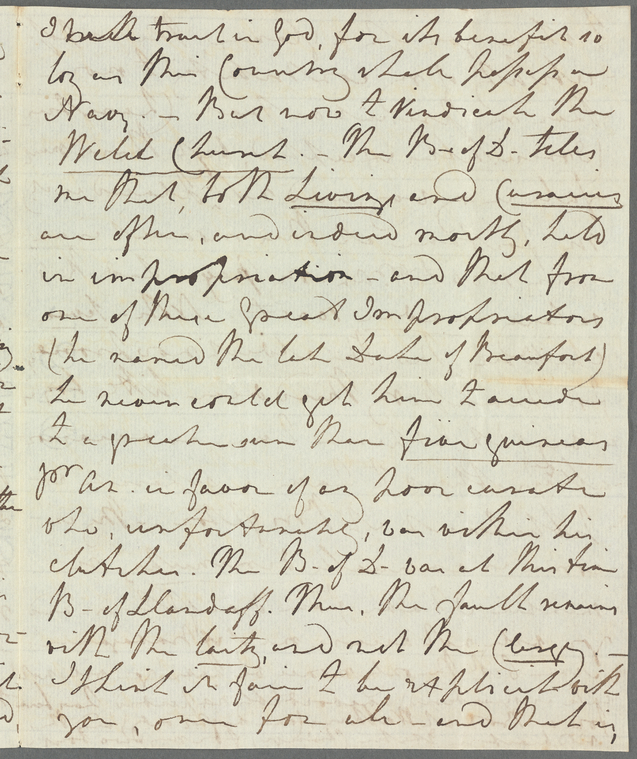 I trust in God, for its benefit so
long as this Country shall possess a
Navy. — But now to Vindicate the
Welch Church. — The B– of D– tells
me that, both Livings and Curacies
are often, and indeed mostly, held
in impropriation – and that from
one of these great Impropriators
(he named the late Duke of Beaufort)
he never could get him to accede
to a greater sum than five guineas
pr An. in favor of any poor curate
who, unfortunately, was within his
clutches. The B– of D– was at this time
B– of Llandaff. Thus, the fault remains
with the laity, and not the Clergy. —
I think it fair to be explicit with
you, once for all – and that is,